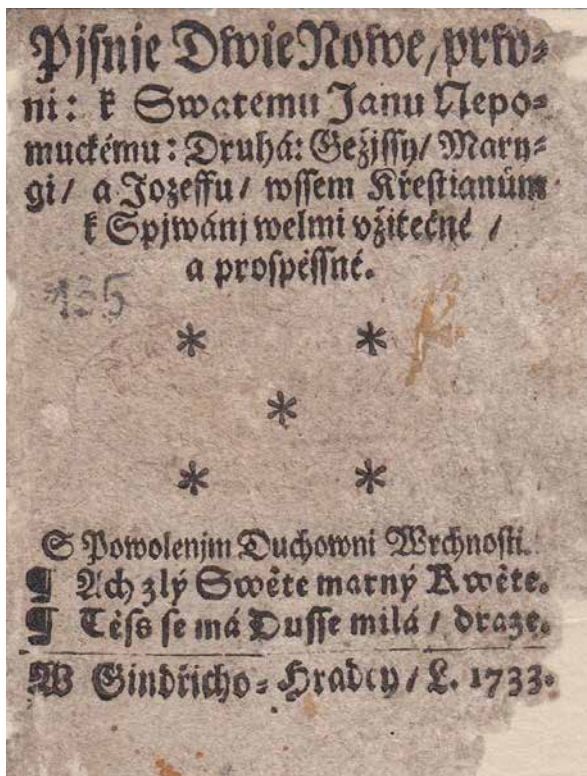 Pjsnie Dwie Nowe, prw=
ni: k Swatemu Janu Nepo=
muckému: Druhá: Gežjssy/ Mary=
gi/ a Jozeffu/ wssem Křestianům
k Spjwánj welmi vžitečné /
a prospěssné.
135
* *
*
* *
S Powolenjm Duchowni Wrchnosti.
¶ Ach zlý Swěte marný Kwěte.
¶ Těss se má Dusse milá / draze.
W Gindřicho=Hradcy/ L. 1733.